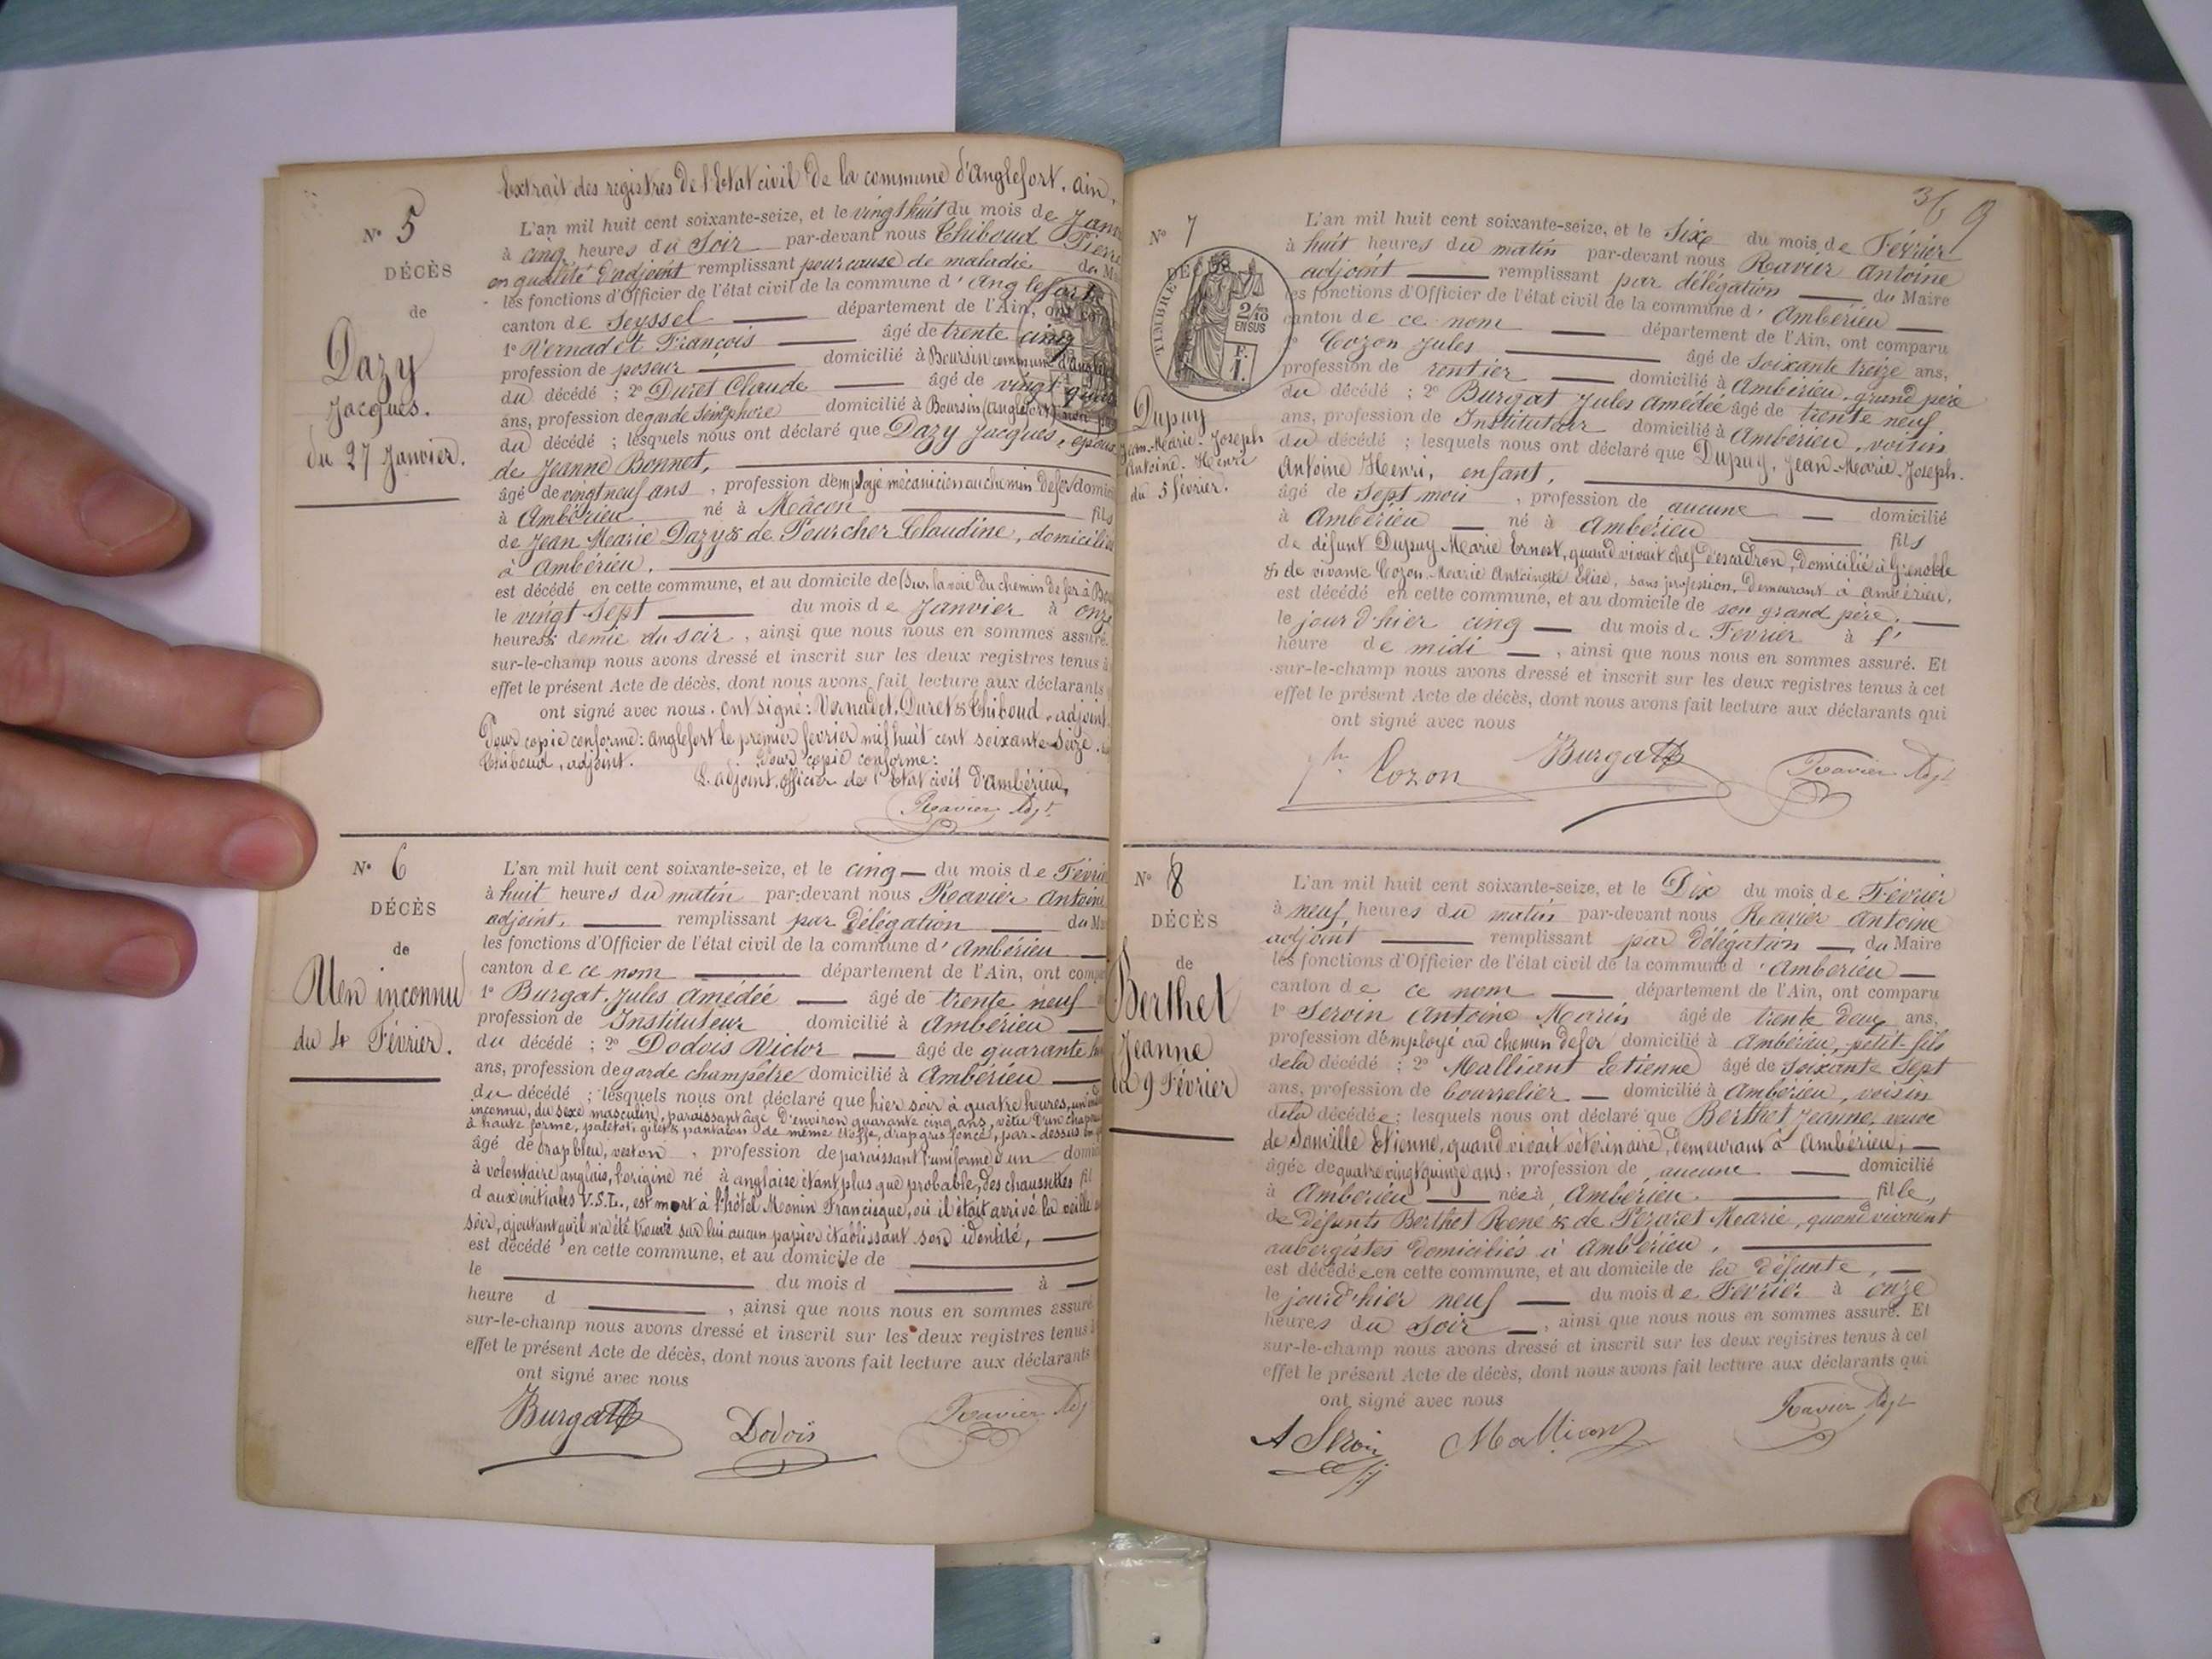 Extrait des registres de l'Etat civil de la commune d'Anglefort. ain.
N° 5
DÉCÈS
de
Dazy
Jacques.
du 27 Janvier.
L'an mil huit cent soixante-seize, et le vingt huit du mois de Janv
à cinq heures du Soir par-devant nous Chiboud Pierre
en qualité d'adjoint remplissant pour cause de maladie du M
les fonctions d'Officier de l'état civil de la commune d'Anglefort
canton de Seyssel département de l'Ain, ont
1° Vernadet François âgé de trente cinq
profession de poseur domicilié à Boursin commune d'
du décédé ; 2° Duret Claude âgé de vingt
ans, profession de garde Sémaphore domicilié à Boursin (Anglefort)
du décédé ; lesquels nous ont déclaré que Dazy Jacques, epoux
de Jeanne Bonnet,
âgé de vingt neuf ans, profession d'employé mécanicien au chemin de fer domic
à Ambérieu né à Mâcon fils
de Jean Marie Dazy & de Pourcher Claudine, domicilié
à Ambérieu.
est décédé en cette commune, et au domicile de (Sur la voie du chemin de fer à
le vingt Sept du mois de Janvier à onze
heures & demie du soir, ainsi que nous nous en sommes assuré.
sur-le-champ nous avons dressé et inscrit sur les deux registres tenus à
effet le présent Acte de décès, dont nous avons fait lecture aux déclarants
ont signé avec nous. Ont signé : Vernadet, Duret & Chiboud, adjoint.
Pour copie conforme : Anglefort le premier fevrier mil huit cent soixante-seize.
Chiboud, adjoint. Pour copie conforme :
L'adjoint, officier de l'Etat civil d'Ambérieu,
Ravier Adjt
N° 6
DÉCÈS
de
Un inconnu
du 4 Février.
L'an mil huit cent soixante-seize, et le cinq du mois de Févrie
à huit heures du matin par-devant nous Ravier Antoine
adjoint, remplissant par délégation du Ma
les fonctions d'Officier de l'état civil de la commune d'Ambérieu
canton de ce nom département de l'Ain, ont comp
1° Burgat, Jules Amédée âgé de trente neuf
profession de Instituteur domicilié à Ambérieu
du décédé ; 2° Dodois Victor âgé de quarante
ans, profession de garde champêtre domicilié à Ambérieu
du décédé ; lesquels nous ont déclaré que hier soir à quatre heures, un
inconnu, du sexe masculin, paraissant âgé d'environ quarante cinq ans, vêtu d'un chapeau
à haute forme, paletot, gilet & pantalon de même étoffe, drap gris foncé, par-dessus
âgé de drap bleu, veston, profession de paraissant l'uniforme d'un domici
à volontaire anglais, l'origine né à anglaise étant plus que probable, des chaussettes fil
d aux initiales V.S.L., est mort à l'hôtel Monin Francisque, où il était arrivé la veille
soir, ajoutant qu'il n'a été trouvé sur lui aucun papier établissant son identité,
est décédé en cette commune, et au domicile de
le du mois d à
heure d , ainsi que nous nous en sommes assuré
sur-le-champ nous avons dressé et inscrit sur les deux registres tenus à
effet le présent Acte de décès, dont nous avons fait lecture aux déclarants
ont signé avec nous
Burgat Dodois Ravier Adj
36 9
N° 7
DÉCÈS
TIMBRE
2/10
EN SUS
F.
1.
Dupuy
Jean-Marie-Joseph
Antoine-Henri
du 5 février.
L'an mil huit cent soixante-seize, et le Six du mois de Février
à huit heures du matin par-devant nous Ravier Antoine
adjoint remplissant par délégation du Maire
les fonctions d'Officier de l'état civil de la commune d'Ambérieu
canton de ce nom département de l'Ain, ont comparu
1° Cozon Jules âgé de Soixante treize ans,
profession de rentier domicilié à Ambérieu, grand père
du décédé ; 2° Burgat Jules Amédée âgé de trente neuf
ans, profession de Instituteur domicilié à Ambérieu, voisin
du décédé ; lesquels nous ont déclaré que Dupuy, Jean-Marie-Joseph-
Antoine Henri, enfant,
âgé de Sept mois, profession de aucune domicilié
à Ambérieu né à Ambérieu fils
de défunt Dupuy Marie Ernest, quand vivait chef d'escadron, domicilié à Grenoble
& de vivante Cozon-Marie Antoinette Elise, sans profession, demeurant à Ambérieu,
est décédé en cette commune, et au domicile de son grand père,
le jour d'hier cinq du mois de Février à l'
heure de midi, ainsi que nous nous en sommes assuré. Et
sur-le-champ nous avons dressé et inscrit sur les deux registres tenus à cet
effet le présent Acte de décès, dont nous avons fait lecture aux déclarants qui
ont signé avec nous
Cozon Burgat Ravier Adjt
N° 8
DÉCÈS
de
Berthet
Jeanne
du 9 Février
L'an mil huit cent soixante-seize, et le Dix du mois de Février
à neuf heures du matin par-devant nous Ravier Antoine
adjoint remplissant par délégation du Maire
les fonctions d'Officier de l'état civil de la commune d'Ambérieu
canton de ce nom département de l'Ain, ont comparu
1° Servin Antoine Marin âgé de trente deux ans,
profession d'employé au chemin de fer domicilié à Ambérieu, petit-fils
de la décédé ; 2° Malliant Etienne âgé de Soixante Sept
ans, profession de bourrelier domicilié à Ambérieu, voisin
de la décédée ; lesquels nous ont déclaré que Berthet Jeanne, veuve
de Etienne, quand vivait vétérinaire, demeurant à Ambérieu ;
âgée de quatre vingt quinze ans, profession de aucune domicilié
à Ambérieu née à Ambérieu. fille,
de défunts Berthet René & de Marie, quand vivaient
aubergistes domiciliés à Ambérieu,
est décédée en cette commune, et au domicile de la défunte,
le jour d'hier neuf du mois de Février à onze
heures du Soir, ainsi que nous nous en sommes assuré. Et
sur-le-champ nous avons dressé et inscrit sur les deux registres tenus à cet
effet le présent Acte de décès, dont nous avons fait lecture aux déclarants qui
ont signé avec nous
Ravier Adjt